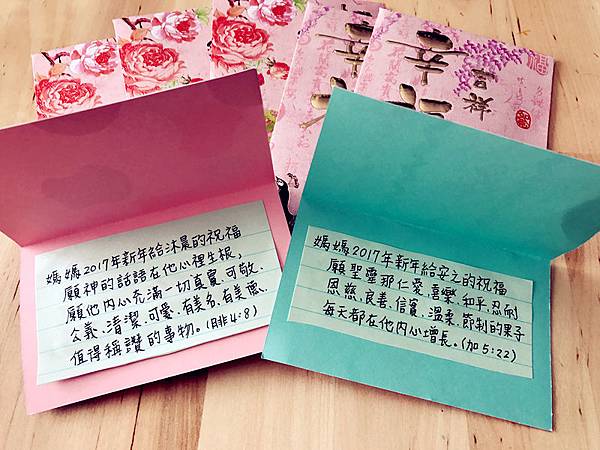 吉祥
媽媽2017年新年給沐晨的祝福
願神的話語在他心裡生根,
願他內心充滿一切真實、可敬、
公義、清潔、可愛、有美名、有美德、
值得稱讚的事物。(腓4:8)
媽媽2017年新年給安之的祝福
願聖靈那仁愛、喜樂、和平、忍耐
恩慈、良善、信實、溫柔、節制的果子
每天都在他內心增長。(加5:22)